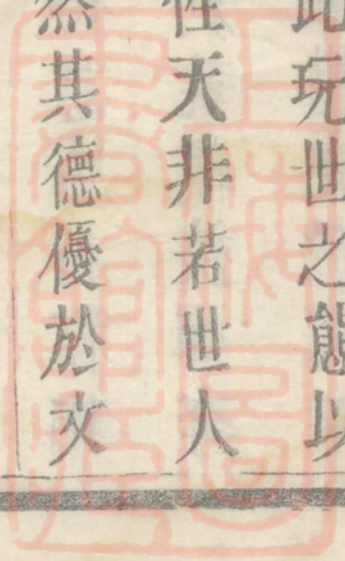 此玩世之態以
任天非若世人
然其德優於文